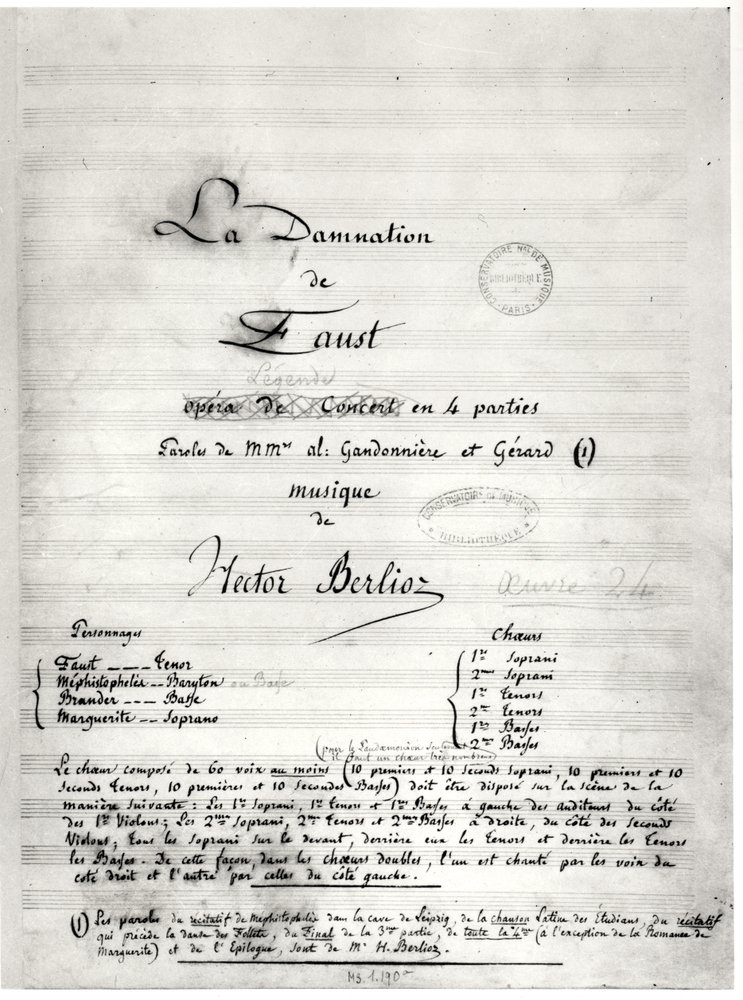 La Damnation
de
Faust
Légende
opéra de Concert en 4 parties
Paroles de MMrs al: Gandonnière et Gérard (1)
musique
de
Hector Berlioz
Œuvre 24
CONSERVATOIRE Nal DE MUSIQUE
BIBLIOTHÈQUE
PARIS
CONSERVATOIRE DE MUSIQUE
BIBLIOTHÈQUE
Personnages
Faust ___ Tenor
Méphistophélès __ Baryton ou Basse
Brander ___ Basse
Marguerite __ Soprano
Chœurs
1ers Soprani
2mes Soprani
1ers Tenors
2mes Tenors
1res Basses
2mes Basses
(pour le Pandæmonium seulement
il faut un chœur très nombreux)
Le chœur composé de 60 voix au moins (10 premiers et 10 seconds Soprani, 10 premiers et 10
seconds Tenors, 10 premières et 10 secondes Basses) doit être disposé sur la scène de la
manière suivante : Les 1rs Soprani, 1rs Tenors et 1res Basses à gauche des auditeurs du côté
des 1rs Violons; Les 2mes Soprani, 2mes Tenors et 2mes Basses à droite, du côté des seconds
Violons; tous les Soprani sur le devant, derrière eux les Tenors et derrière les Tenors
les Basses. De cette façon, dans les chœurs doubles, l'un est chanté par les voix du
coté droit et l'autre par celles du côté gauche.
(1) Les paroles du récitatif de Méphistophélès dans la cave de Leipzig, de la chanson Latine des Étudians, du récitatif
qui précède la danse des Follets, du Final de la 3me partie, de toute la 4me (à l'exception de la Romance de
Marguerite) et de l'Epilogue, sont de Mr H. Berlioz.
MS.1.190